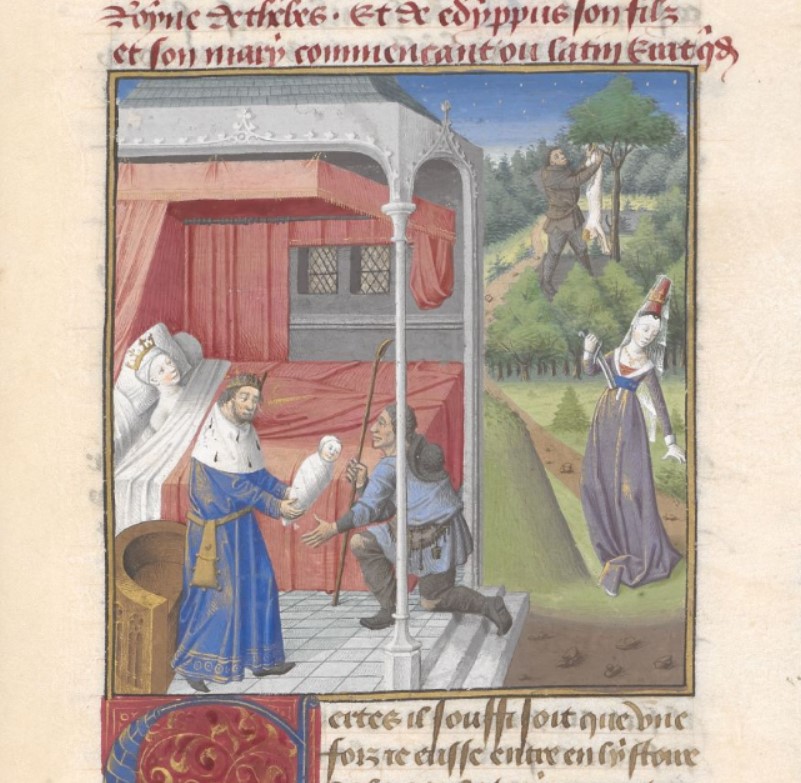 Royne de thebes. Et de edyppus son filz
et son mary commencant ou latin Erat qd
ertes il souffisoit que une
fois ie eusse entre en lystoire